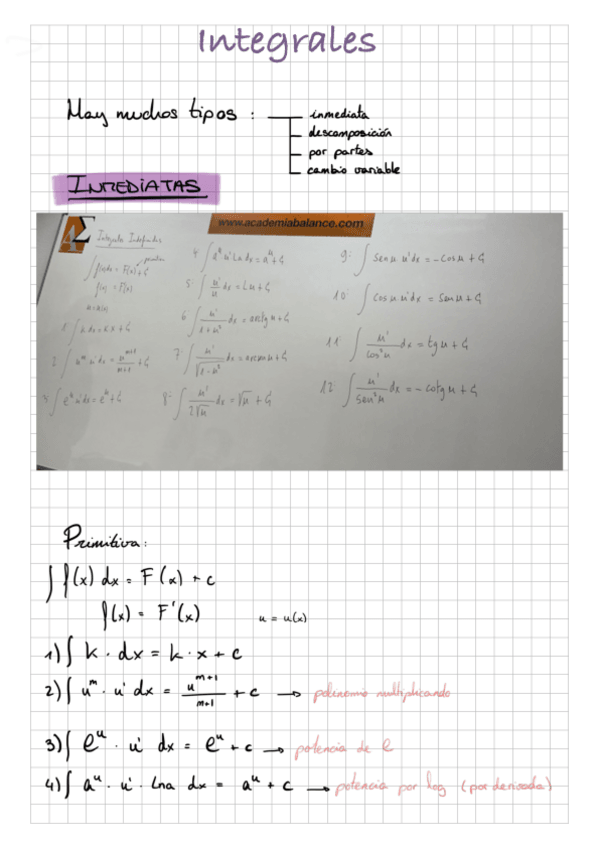 Integrales
Hay muchos tipos :
inmediata
descomposición
por partes
cambio variable
INMEDIATAS
www.academiabalance.com
Integrales Indefinidas
primitiva
∫ f(x)dx = F(x) + C
f(x) = F'(x)
u = u(x)
1: ∫ k dx = k x + C
2: ∫ u^m u' dx = u^(m+1)/(m+1) + C
∫ e^u u' dx = e^u + C
4: ∫ a^u u' Ln a dx = a^u + C
5: ∫ u'/u dx = Lu + C
6: ∫ u'/(1+u²) dx = arctg u + C
7: ∫ u'/√(1-u²) dx = arcsen u + C
8: ∫ u'/(2√u) dx = √u + C
9: ∫ sen u u' dx = - cos u + C
10: ∫ cos u u' dx = sen u + C
11: ∫ u'/cos²u dx = tg u + C
12: ∫ u'/sen²u dx = - cotg u + C
Primitiva:
∫ f(x) dx = F(x) + c
f(x) = F'(x) u = u(x)
1) ∫ k · dx = k · x + c
2) ∫ u^m · u' dx = u^(m+1)/(m+1) + c → polinomio multiplicando
3) ∫ e^u · u' dx = e^u + c → potencia de e
4) ∫ a^u · u' · Lna dx = a^u + c → potencia por log (por derivada)